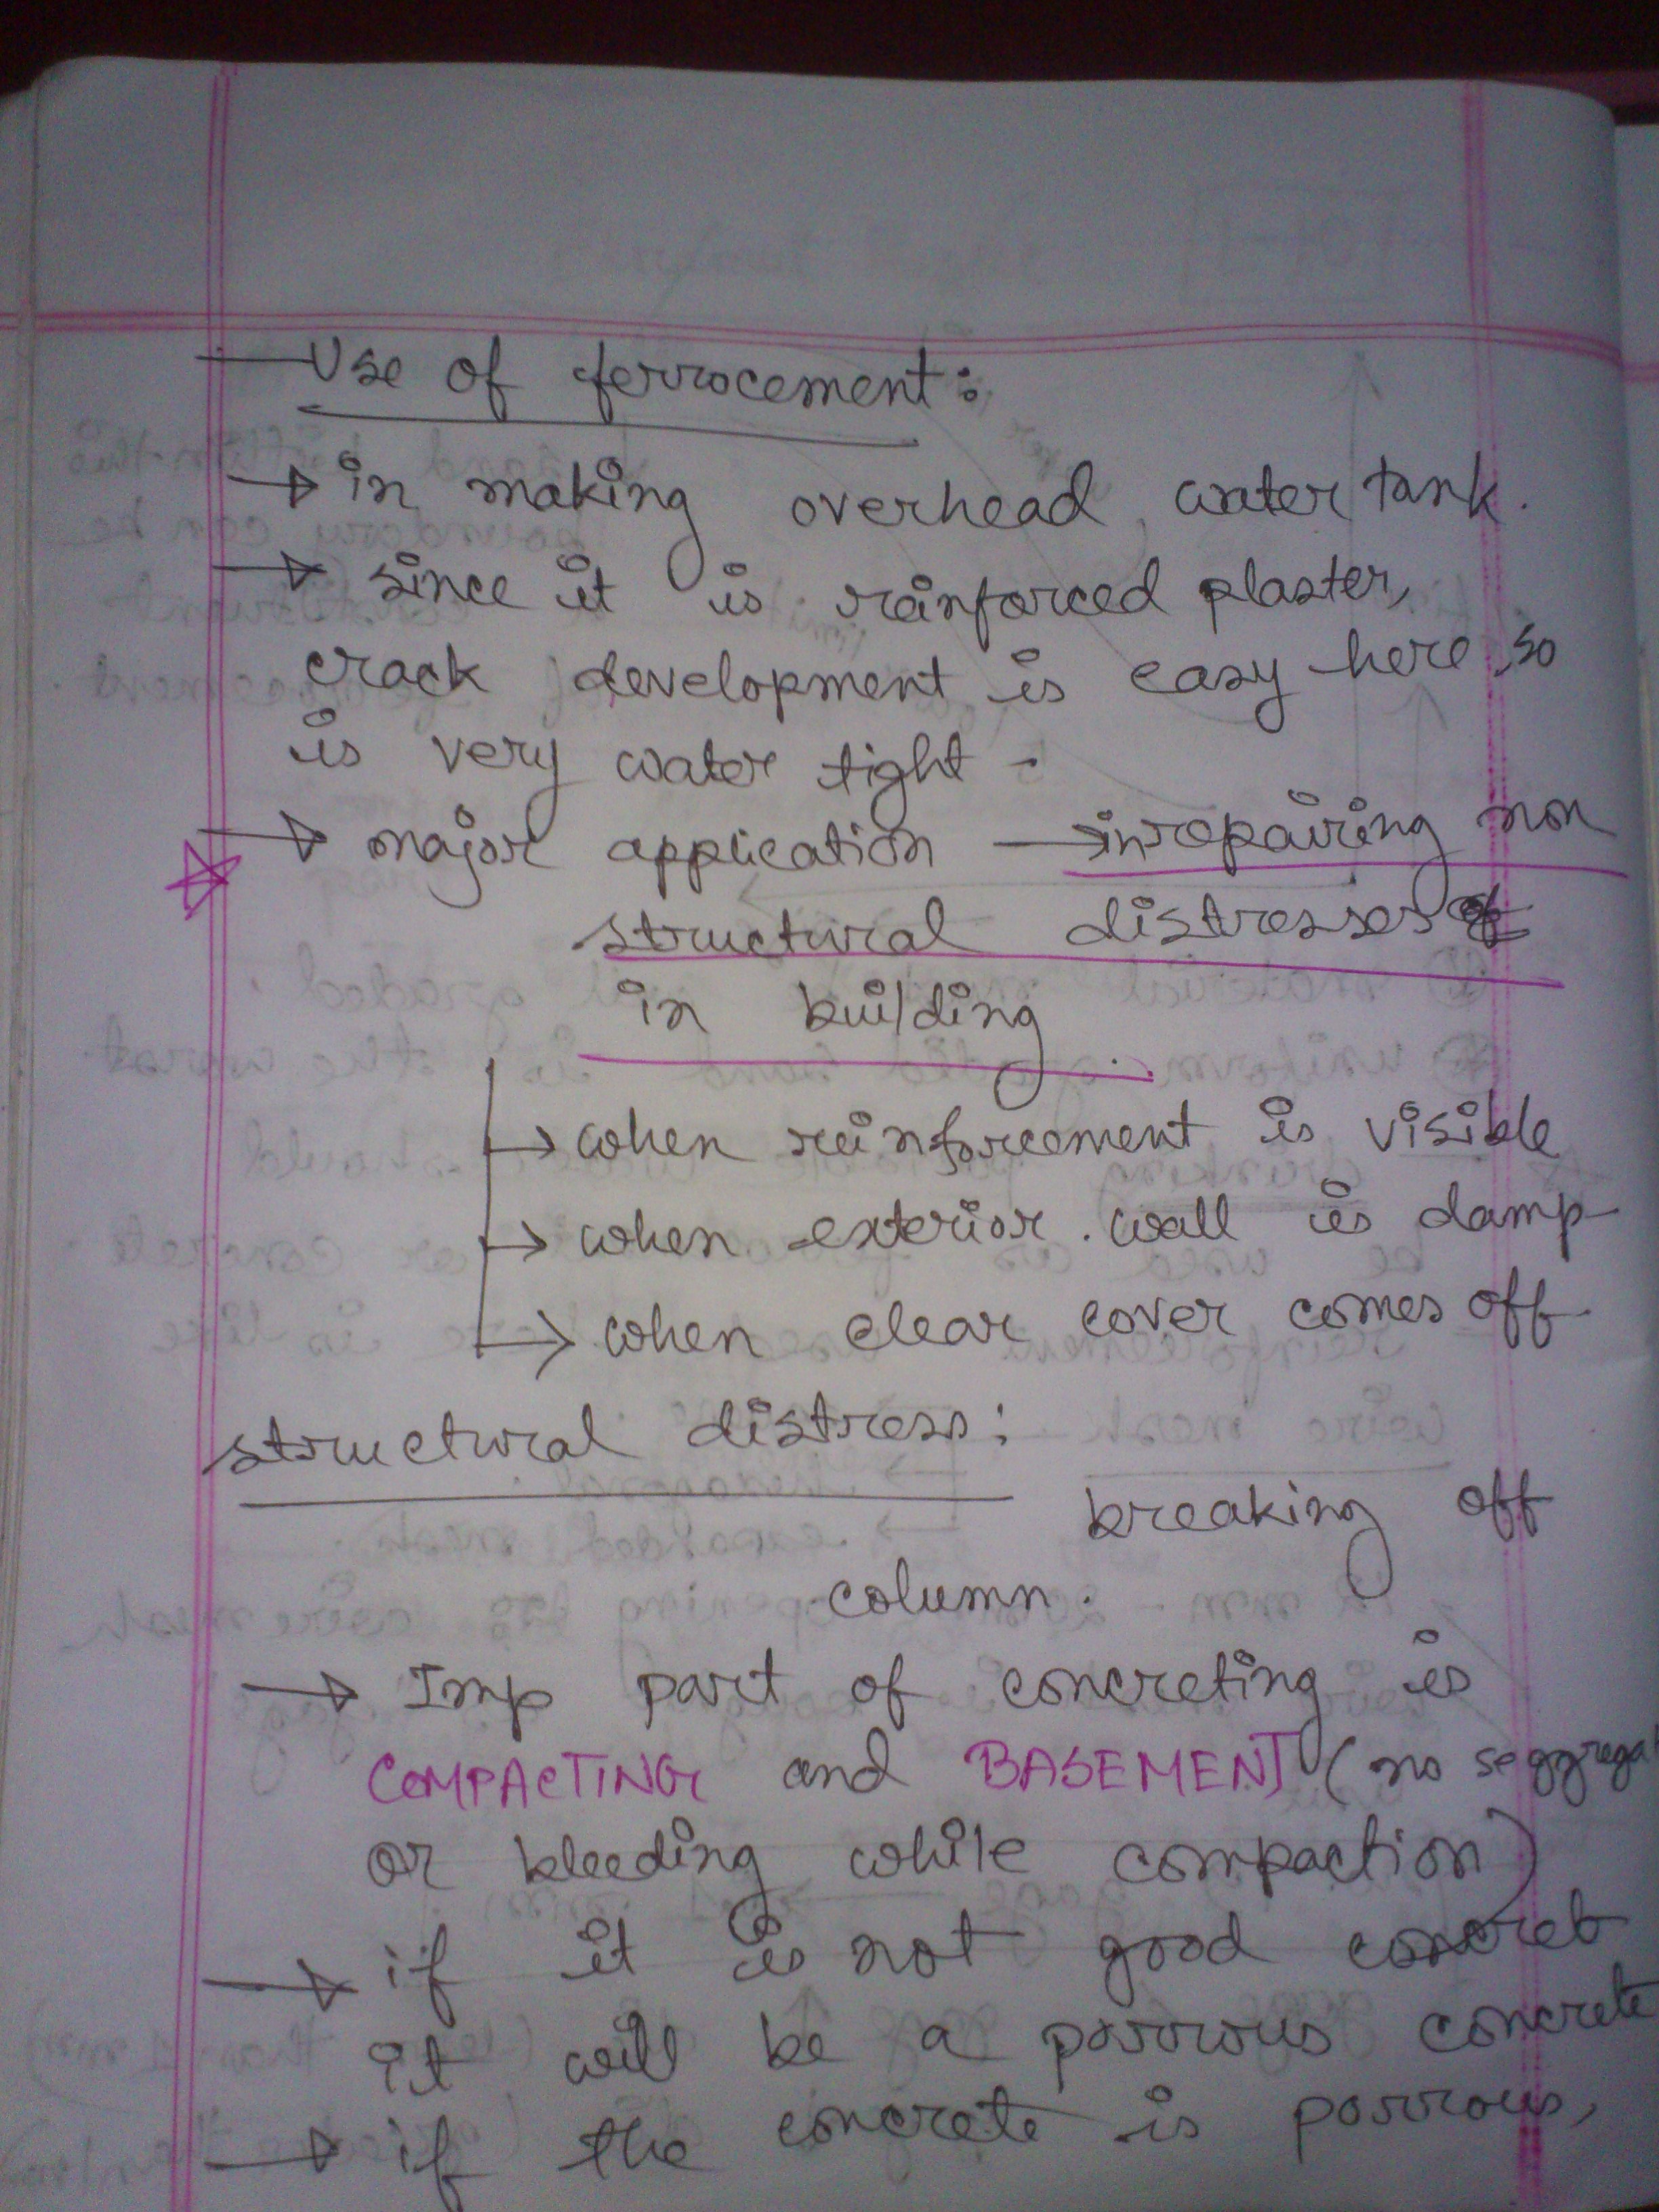 Use of ferrocement:
→ in making overhead water tank.
→ since it is reinforced plaster,
crack development is easy here so
is very water tight.
→ major application → in repairing non
structural distresses
in building.
→ when reinforcement is visible
→ when exterior wall is damp
→ when clear cover comes off
structural distress:
breaking off
column.
→ Imp part of concreting is
COMPACTING and BASEMENT (no seggregat
or bleeding while compaction)
→ if it is not good concret
it will be a porrous concrete
→ if the concrete is porrous,